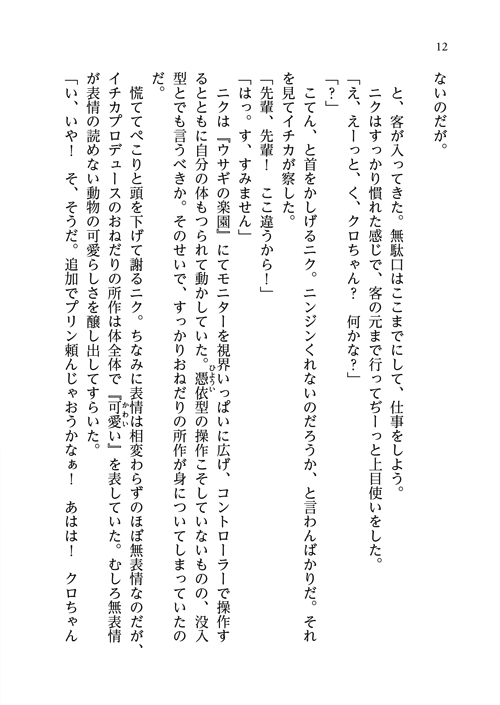 12
ないのだが。
と、客が入ってきた。無駄口はここまでにして、仕事をしよう。
ニクはすっかり慣れた感じで、客の元まで行ってぢーっと上目使いをした。
「え、えーっと、く、クロちゃん？　何かな？」
「？」
こてん、と首をかしげるニク。ニンジンくれないのだろうか、と言わんばかりだ。それ
を見てイチカが察した。
「先輩、先輩！　ここ違うから！」
「はっ。す、すみません」
ニクは『ウサギの楽園』にてモニターを視界いっぱいに広げ、コントローラーで操作す
るとともに自分の体もつられて動かしていた。憑依型の操作こそしていないものの、没入
型とでも言うべきか。そのせいで、すっかりおねだりの所作が身についてしまっていたの
だ。
慌ててぺこりと頭を下げて謝るニク。ちなみに表情は相変わらずのほぼ無表情なのだが、
イチカプロデュースのおねだりの所作は体全体で『可愛い』を表していた。むしろ無表情
が表情の読めない動物の可愛らしさを醸し出してすらいた。
「い、いや！　そ、そうだ。追加でプリン頼んじゃおうかなぁ！　あはは！　クロちゃん